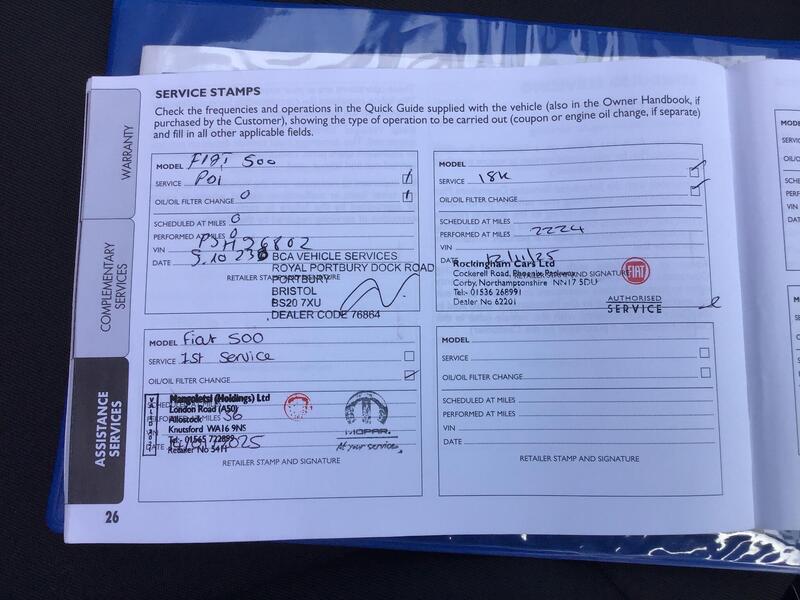 SERVICE STAMPS
Check the frequencies and operations in the Quick Guide supplied with the vehicle (also in the Owner Handbook, if
purchased by the Customer), showing the type of operation to be carried out (coupon or engine oil change, if separate)
and fill in all other applicable fields.
WARRANTY
COMPLEMENTARY
SERVICES
ASSISTANCE
SERVICES
MODEL FIAT 500
SERVICE PDI
OIL/OIL FILTER CHANGE 0
SCHEDULED AT MILES 0
PERFORMED AT MILES 0
VIN PJH26802
DATE 5.10.23
BCA VEHICLE SERVICES
ROYAL PORTBURY DOCK ROAD
PORTBURY
BRISTOL
BS20 7XU
DEALER CODE 76864
RETAILER STAMP AND SIGNATURE
MODEL
SERVICE 18K
OIL/OIL FILTER CHANGE
SCHEDULED AT MILES
PERFORMED AT MILES 2224
VIN
DATE 12/11/25
Rockingham Cars Ltd
Cockerell Road, Phoenix Parkway
Corby, Northamptonshire NN17 5DU
Tel: 01536 268991
Dealer No 62201
RETAILER STAMP AND SIGNATURE
FIAT
AUTHORISED
SERVICE
MODEL Fiat 500
SERVICE 1st Service
OIL/OIL FILTER CHANGE
SCHEDULED AT MILES
PERFORMED AT MILES 36
VIN
DATE 2025
Mangoletsi (Holdings) Ltd
London Road (A50)
Allostock
Knutsford WA16 9NS
Tel: 01565 722899
Retailer No 5411
MOPAR
At your service.
RETAILER STAMP AND SIGNATURE
MODEL
SERVICE
OIL/OIL FILTER CHANGE
SCHEDULED AT MILES
PERFORMED AT MILES
VIN
DATE
RETAILER STAMP AND SIGNATURE
26